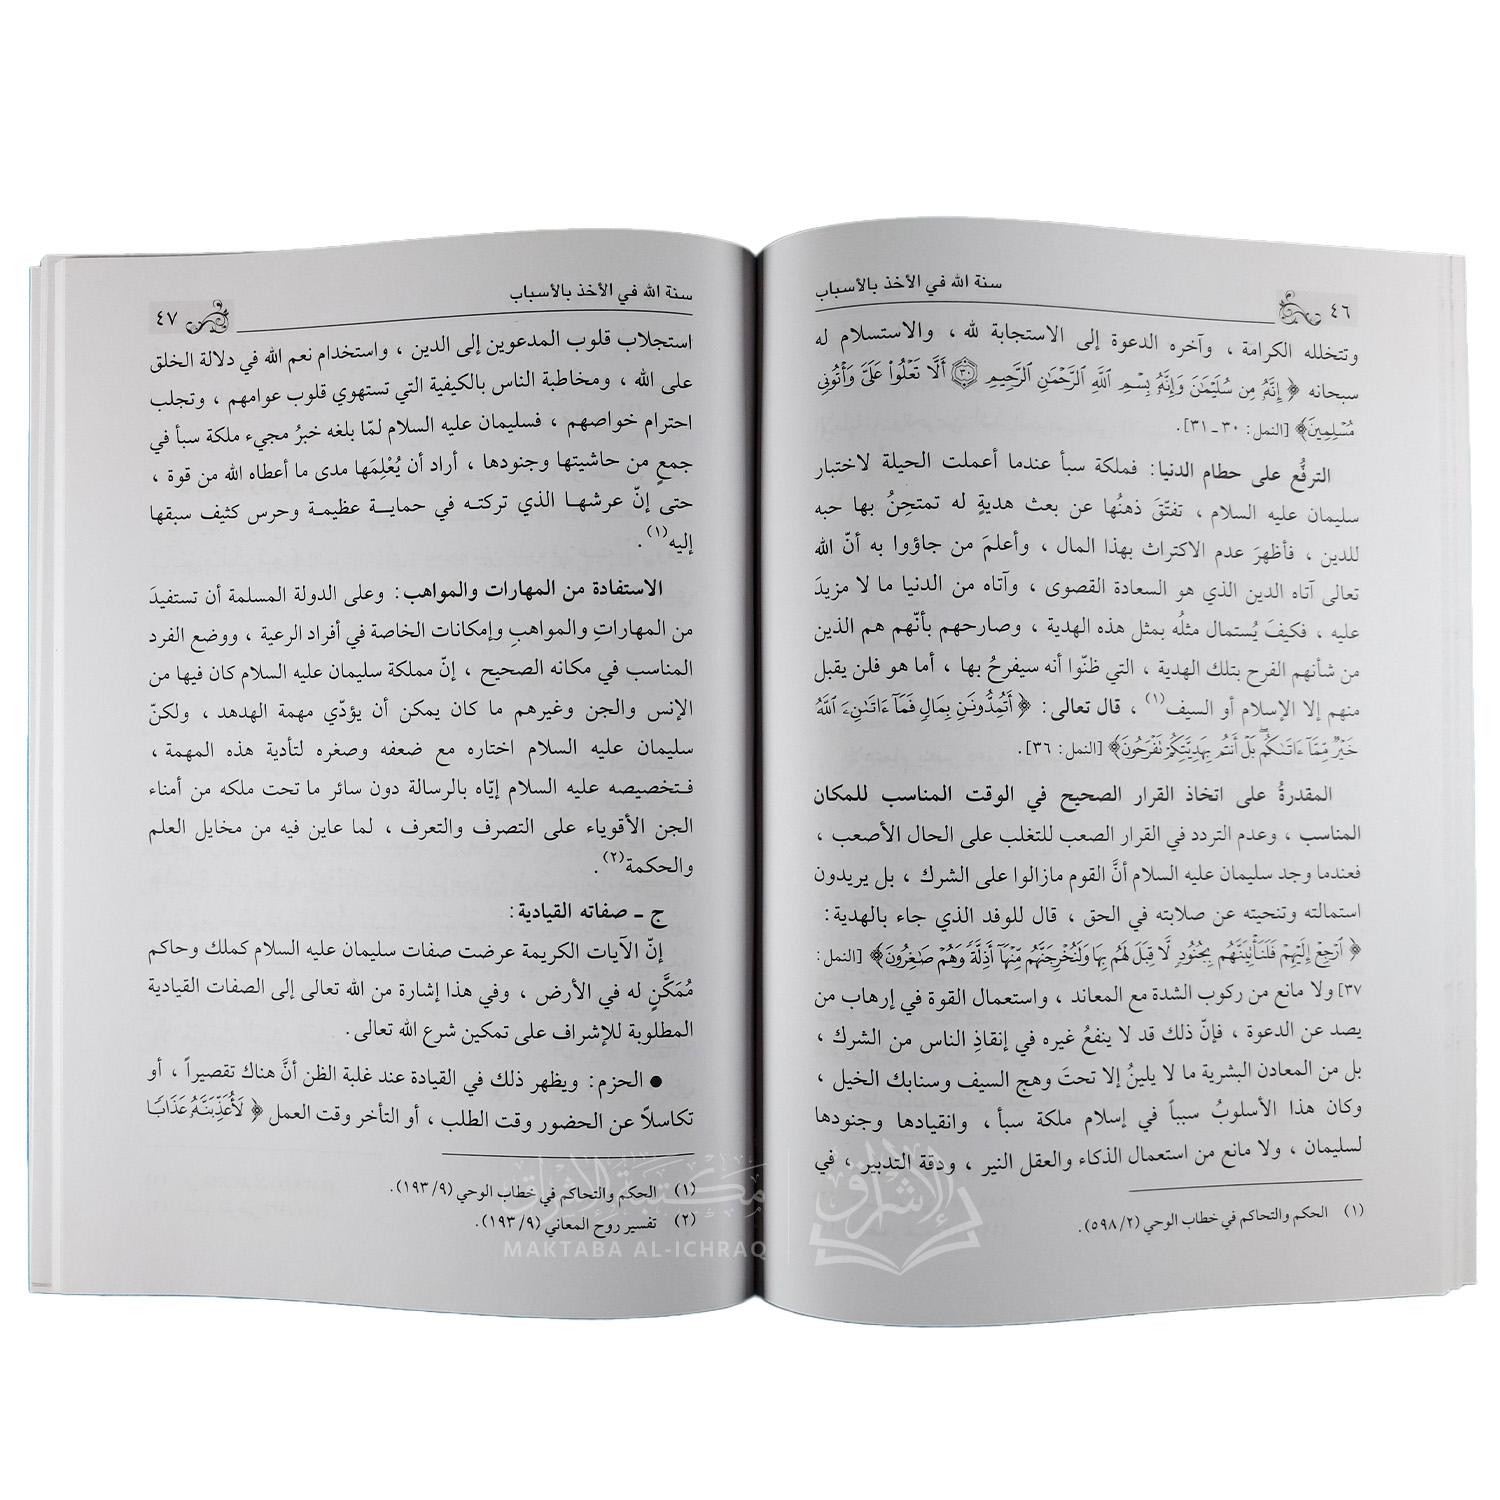 سنة الله في الأخذ بالأسباب
٤٦
وتتخلله الكرامة ، وآخره الدعوة إلى الاستجابة لله ، والاستسلام له
سبحانه ﴿ إِنَّهُۥ مِن سُلَيۡمَٰنَ وَإِنَّهُۥ بِسۡمِ ٱللَّهِ ٱلرَّحۡمَٰنِ ٱلرَّحِيمِ ٣٠ أَلَّا تَعۡلُواْ عَلَيَّ وَأۡتُونِي
مُسۡلِمِينَ﴾ [النمل: ٣٠ ـ ٣١].
الترفُّع على حطام الدنيا: فملكة سبأ عندما أعملت الحيلة لاختبار
سليمان عليه السلام ، تفتّقَ ذهنُها عن بعث هديةٍ له تمتحِنُ بها حبه
للدين ، فأظهرَ عدم الاكتراث بهذا المال ، وأعلمَ من جاؤوا به أنّ الله
تعالى آتاه الدين الذي هو السعادة القصوى ، وآتاه من الدنيا ما لا مزيدَ
عليه ، فكيفَ يُستمال مثلُه بمثل هذه الهدية ، وصارحهم بأنّهم هم الذين
من شأنهم الفرح بتلك الهدية ، التي ظنّوا أنه سيفرحُ بها ، أما هو فلن يقبل
منهم إلا الإسلام أو السيف(١) ، قال تعالى: ﴿ أَتُمِدُّونَنِ بِمَالٖ فَمَآ ءَاتَىٰنِۦَ ٱللَّهُ
خَيۡرٞ مِّمَّآ ءَاتَىٰكُمۚ بَلۡ أَنتُم بِهَدِيَّتِكُمۡ تَفۡرَحُونَ﴾ [النمل: ٣٦].
المقدرةُ على اتخاذ القرار الصحيح في الوقت المناسب للمكان
المناسب ، وعدم التردد في القرار الصعب للتغلب على الحال الأصعب ،
فعندما وجد سليمان عليه السلام أنَّ القوم مازالوا على الشرك ، بل يريدون
استمالته وتنحيته عن صلابته في الحق ، قال للوفد الذي جاء بالهدية:
﴿ ٱرۡجِعۡ إِلَيۡهِمۡ فَلَنَأۡتِيَنَّهُم بِجُنُودٖ لَّا قِبَلَ لَهُم بِهَا وَلَنُخۡرِجَنَّهُم مِّنۡهَآ أَذِلَّةٗ وَهُمۡ صَٰغِرُونَ﴾ [النمل:
٣٧] ولا مانع من ركوب الشدة مع المعاند ، واستعمال القوة في إرهاب من
يصد عن الدعوة ، فإنّ ذلك قد لا ينفعُ غيره في إنقاذِ الناس من الشرك ،
بل من المعادن البشرية ما لا يلينُ إلا تحتَ وهج السيف وسنابك الخيل ،
وكان هذا الأسلوبُ سبباً في إسلام ملكة سبأ ، وانقيادها وجنودها
لسليمان ، ولا مانع من استعمال الذكاء والعقل النير ، ودقة التدبير ، في
(١) الحكم والتحاكم في خطاب الوحي (٥٩٨/٢).
سنة الله في الأخذ بالأسباب
٤٧
استجلاب قلوب المدعوين إلى الدين ، واستخدام نعم الله في دلالة الخلق
على الله ، ومخاطبة الناس بالكيفية التي تستهوي قلوب عوامهم ، وتجلب
احترام خواصهم ، فسليمان عليه السلام لمّا بلغه خبرُ مجيء ملكة سبأ في
جمعٍ من حاشيتها وجنودها ، أراد أن يُعْلِمَها مدى ما أعطاه الله من قوة ،
حتى إنّ عرشها الذي تركته في حماية عظيمة وحرس كثيف سبقها
إليه(١) .
الاستفادة من المهارات والمواهب: وعلى الدولة المسلمة أن تستفيدَ
من المهاراتِ والمواهبِ وإمكانات الخاصة في أفراد الرعية ، ووضع الفرد
المناسب في مكانه الصحيح ، إنّ مملكة سليمان عليه السلام كان فيها من
الإنس والجن وغيرهم ما كان يمكن أن يؤدّي مهمة الهدهد ، ولكنّ
سليمان عليه السلام اختاره مع ضعفه وصغره لتأدية هذه المهمة ،
فتخصيصه عليه السلام إيّاه بالرسالة دون سائر ما تحت ملكه من أمناء
الجن الأقوياء على التصرف والتعرف ، لما عاين فيه من مخايل العلم
والحكمة(٢) .
ج ـ صفاته القيادية:
إنّ الآيات الكريمة عرضت صفات سليمان عليه السلام كملك وحاكم
مُمَكَّنٍ له في الأرض ، وفي هذا إشارة من الله تعالى إلى الصفات القيادية
المطلوبة للإشراف على تمكين شرع الله تعالى.
● الحزم: ويظهر ذلك في القيادة عند غلبة الظن أنَّ هناك تقصيراً ، أو
تكاسلاً عن الحضور وقت الطلب ، أو التأخر وقت العمل ﴿ لَأُعَذِّبَنَّهُۥ عَذَابٗا
(١) الحكم والتحاكم في خطاب الوحي (١٩٣/٩).
(٢) تفسير روح المعاني (١٩٣/٩).
مكتبة الإشراق
MAKTABA AL-ICHRAQ
الإشراق